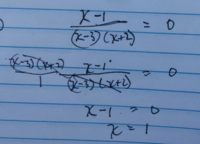 ) x-1 / (x-3)(x+2) = 0
(x-3)(x+2) / 1 · x-1 / (x-3)(x+2) = 0
x-1 = 0
x = 1